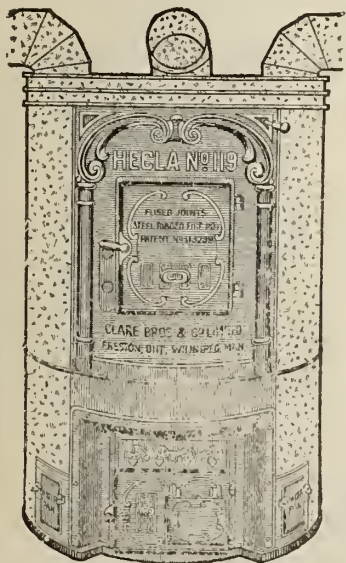 HECLA No 119
FUSED JOINTS
STEEL RIBBED FIRE POT
PATENT No
CLARE BROS & CO LIMITED
PRESTON, ONT. WINNIPEG, MAN.